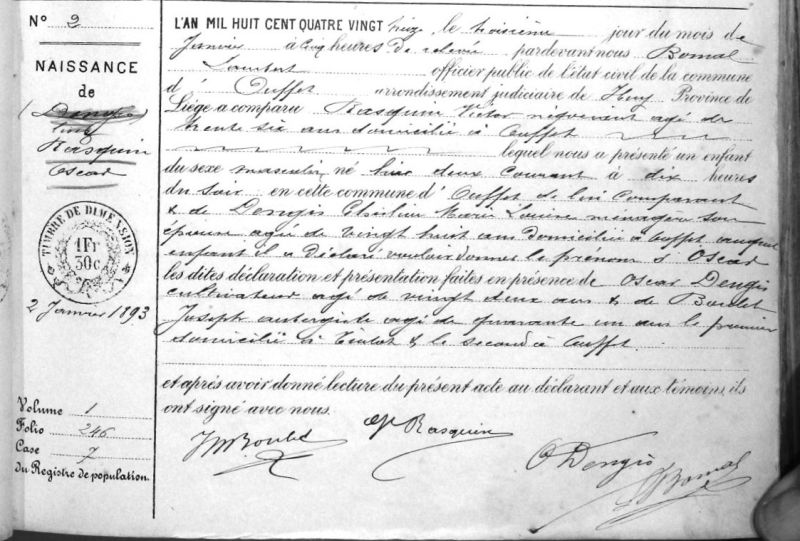 N° 2
NAISSANCE
de
Dengis
Rasquin
Oscar
TIMBRE DE DIMENSION
1Fr
30c
2 Janvier 1893
Volume 1
Folio 246
Case 7
du Registre de population.
L'AN MIL HUIT CENT QUATRE VINGT treize, le troisième jour du mois de
Janvier à cinq heures de relevée pardevant nous Bomal
Lambert officier public de l'état civil de la commune
d' Ouffet arrondissement judiciaire de Huy Province de
Liège a comparu Rasquin Victor négociant agé de
trente six ans domicilié à Ouffet
lequel nous a présenté un enfant
du sexe masculin né hier deux courant à dix heures
du soir en cette commune d' Ouffet de lui comparant
& de Dengis Marie Louise ménagère son
épouse agée de vingt huit ans domiciliée à Ouffet auquel
enfant il a déclaré vouloir donner le prénom d' Oscar
les dites déclaration et présentation faites en présence de Oscar Dengis
cultivateur agé de vingt deux ans & de Boulet
Joseph aubergiste agé de quarante un ans le premier
domicilié à & le second à Ouffet.
et après avoir donné lecture du présent acte au déclarant et aux témoins, ils
ont signé avec nous.
Boulet
Rasquin
O Dengis
Bomal